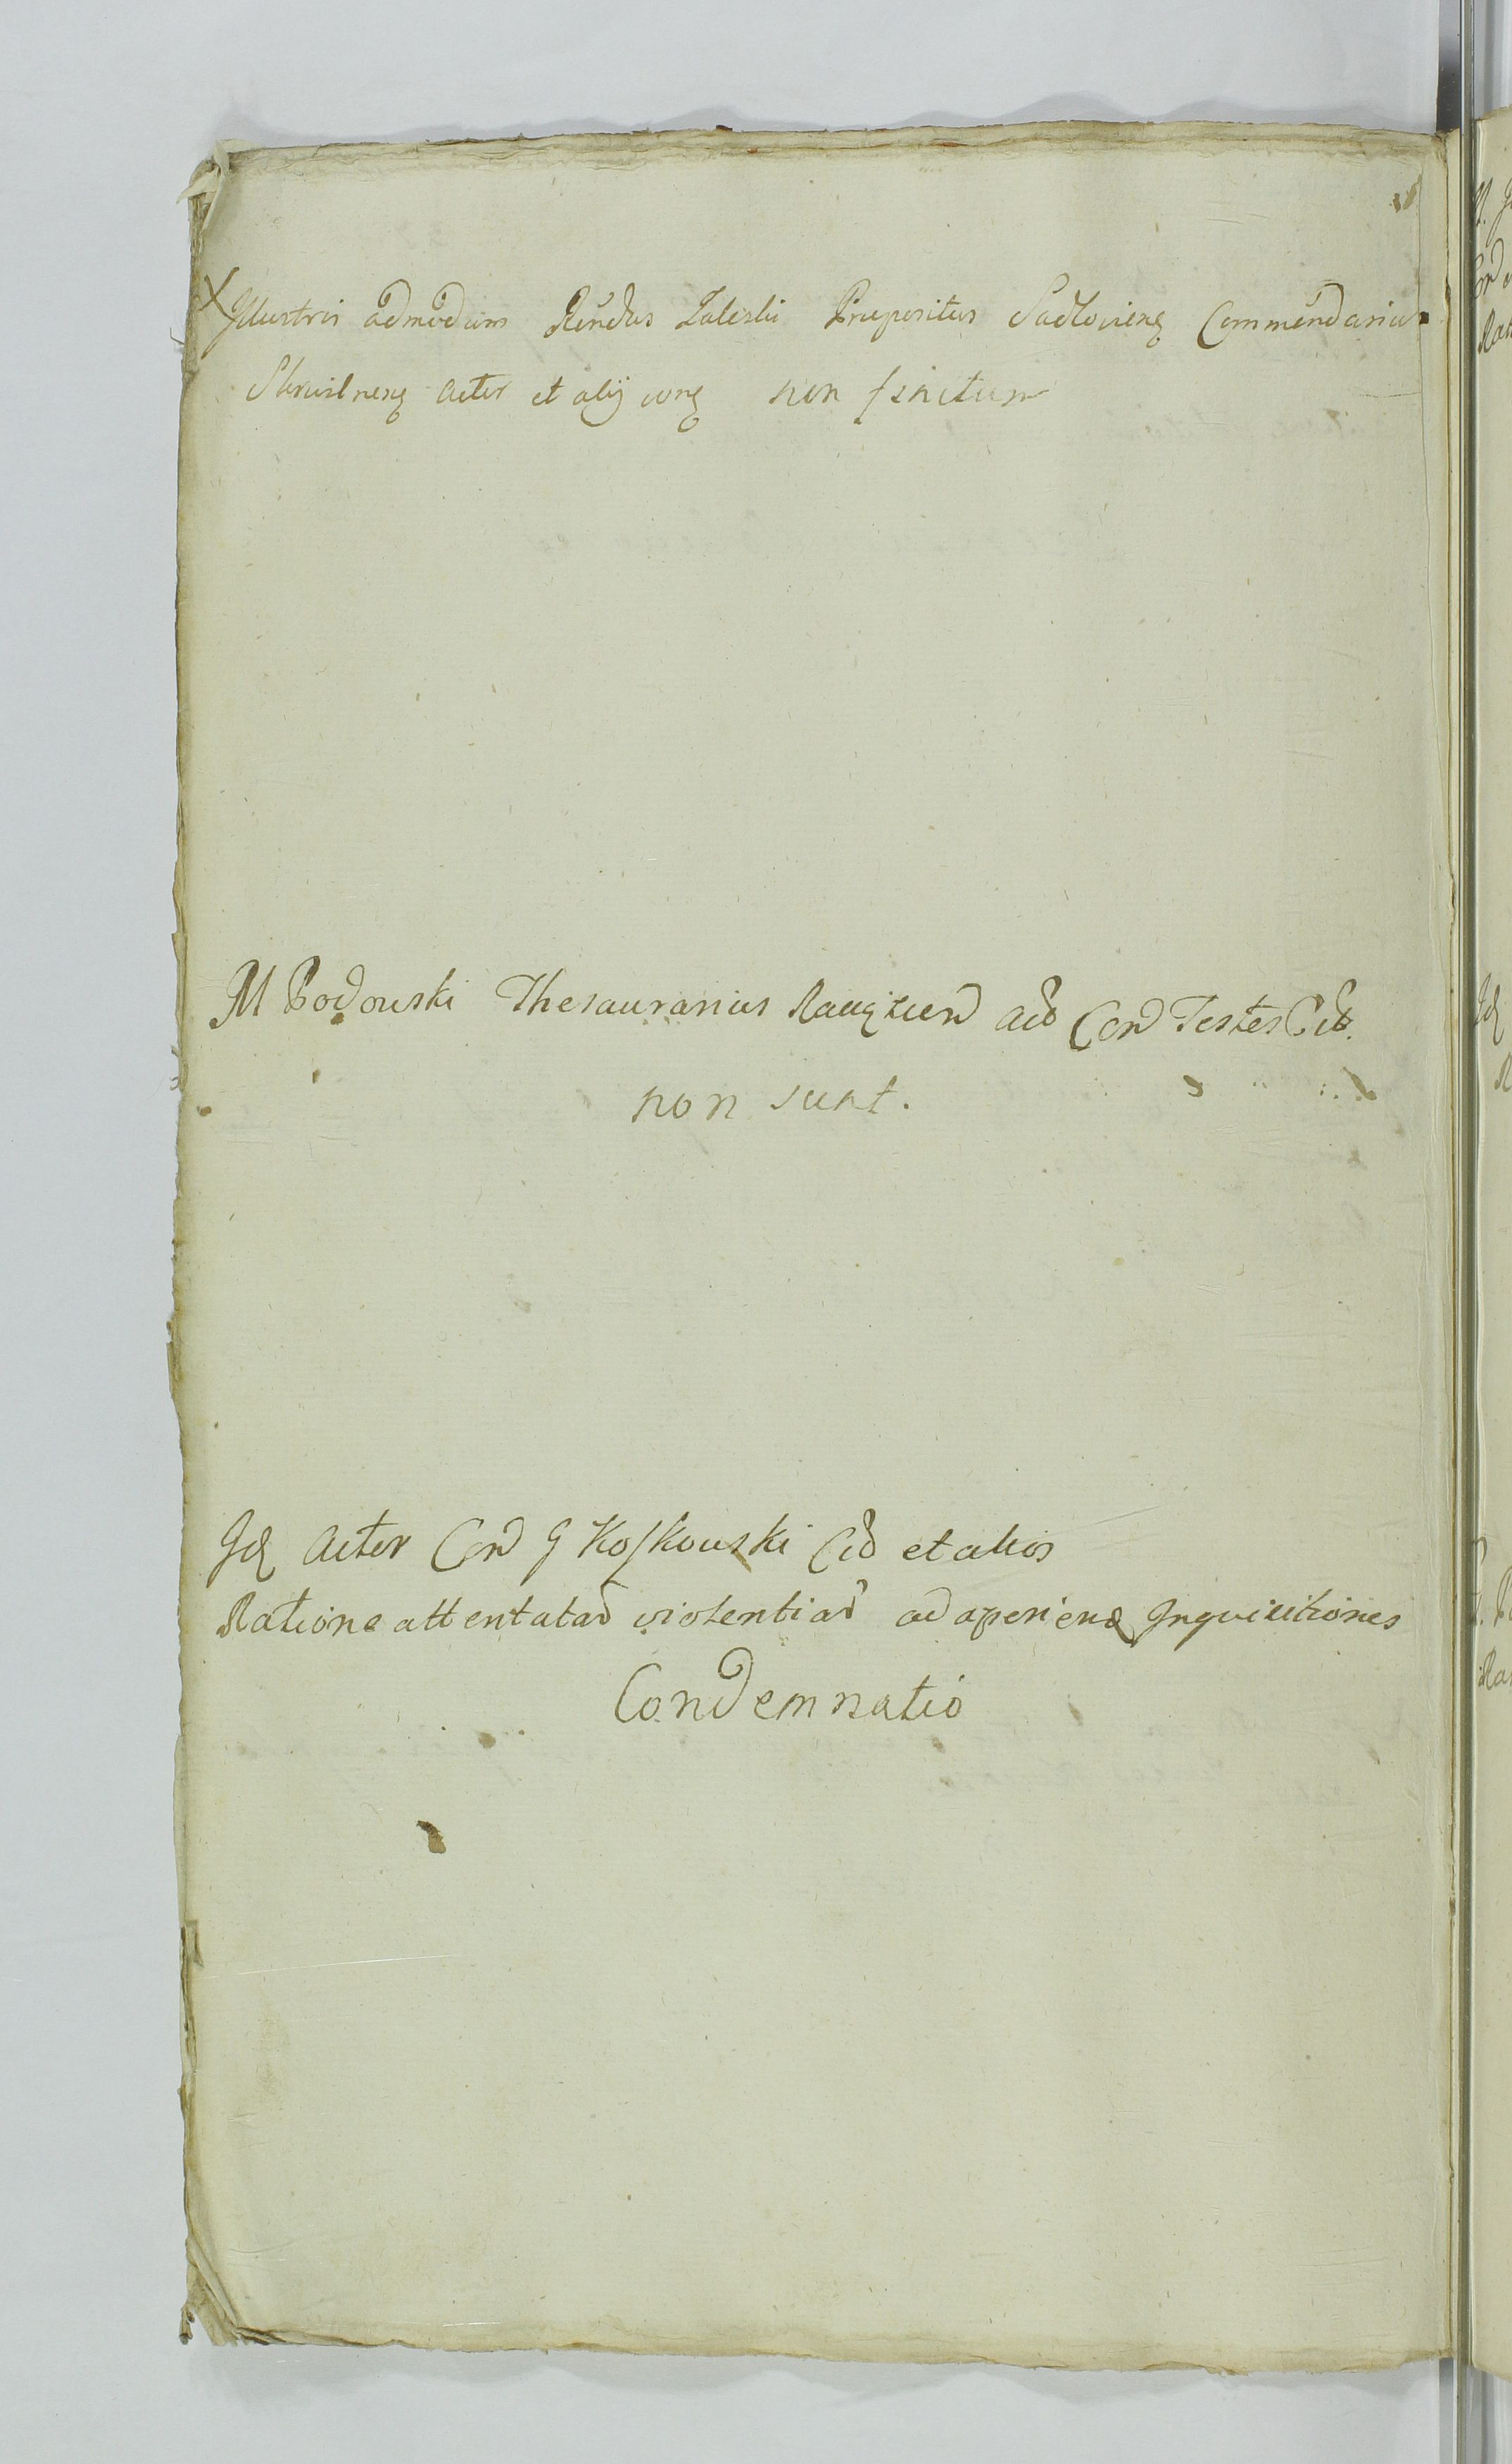 Illustris admodum Rndus Zaleski Præpositus Sadłoviens Commendarius
Skrwilnens Actor et alij cons non finitum
M Podowski Thesaurarius Raugrod Act Con Testes Cit.
non sunt.
Id Actor Con G Koskowski Cit et alios
Ratione attentatar violentiar ad aperiend Inquisitiones
Condemnatio